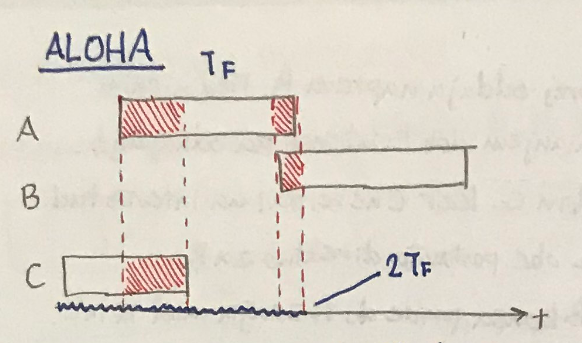 ALOHA
T_F
A
B
C
2T_F
t